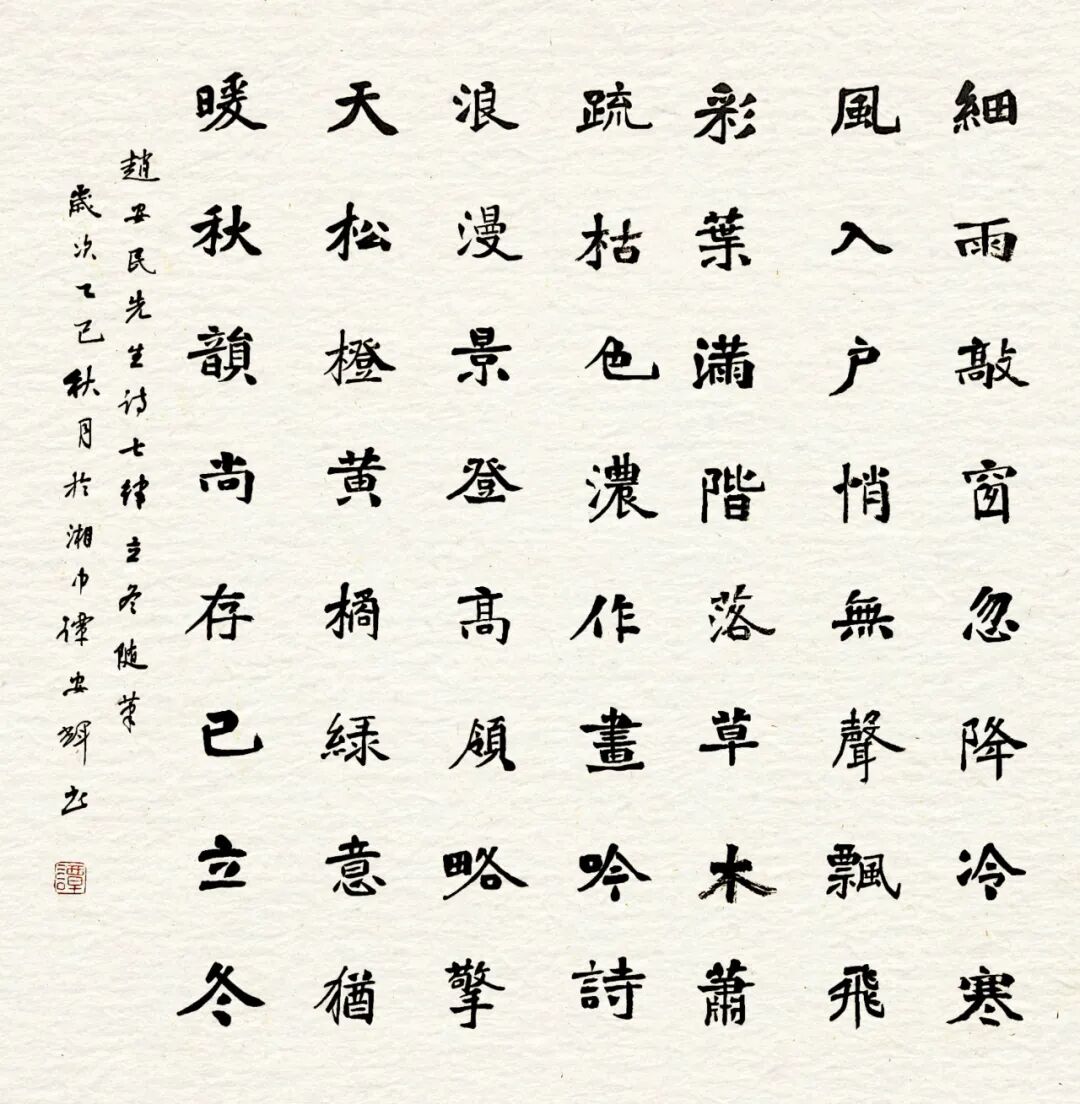 細雨敲窗忽降冷寒
風入户悄無聲飄飛
彩葉滿階落草木蕭
疏枯色濃作畫吟詩
浪漫景登高領略擎
天松橙黄橘緑意猶
暖秋韻尚存已立冬
趙安民先生诗七律立冬随筆
歲次乙巳秋月於湘中譚安輝书
譚